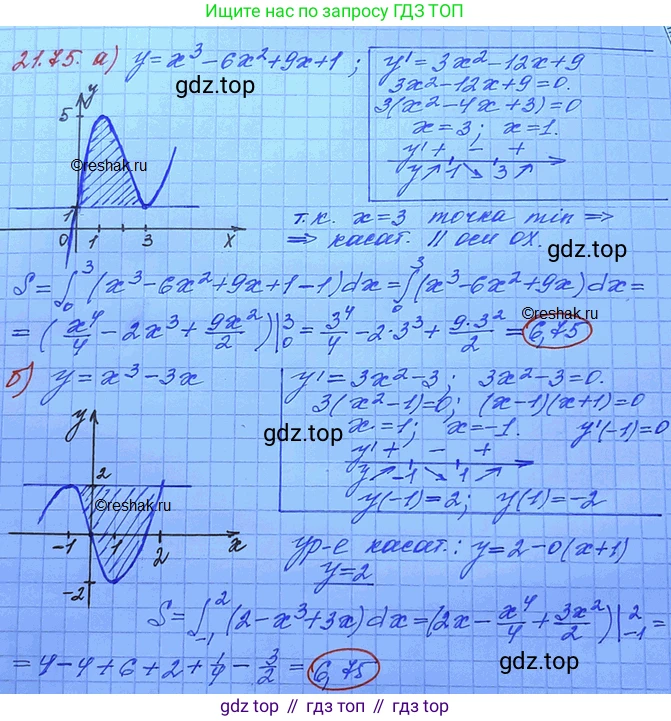 Ищите нас по запросу ГДЗ ТОП
21.75. а) y = x³ - 6x² + 9x + 1 ;
y' = 3x² - 12x + 9
3x² - 12x + 9 = 0.
3(x² - 4x + 3) = 0
x = 3; x = 1.
y' + - +
y ↗ 1 ↘ 3 ↗
gdz.top
y
5
©reshak.ru
1
0 1 3 x
т.к. x = 3 точка min ⇒
⇒ касат. || оси OX.
gdz.top
S = ∫₀³ (x³ - 6x² + 9x + 1 - 1)dx = ∫₀³ (x³ - 6x² + 9x)dx =
= (x⁴/4 - 2x³ + 9x²/2)|₀³ = 3⁴/4 - 2·3³ + 9·3²/2 = 6,75
б) y = x³ - 3x
y' = 3x² - 3, 3x² - 3 = 0.
3(x² - 1) = 0; (x - 1)(x + 1) = 0
x = 1; x = -1. y'(-1) = 0
y' + - +
y ↗ -1 ↘ 1 ↗
y(-1) = 2; y(1) = -2
gdz.top
y
2
©reshak.ru
-1 1 2 x
-2
ур-е касат.: y = 2 - 0(x + 1)
y = 2
S = ∫₋₁² (2 - x³ + 3x)dx = (2x - x⁴/4 + 3x²/2)|₋₁² =
= 4 - 4 + 6 + 2 + 1/4 - 3/2 = 6,75
gdz.top
gdz.top // гдз.топ // gdz.top